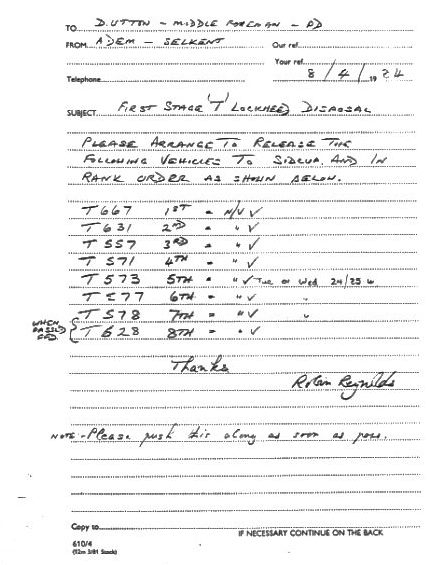 TO D. UTTON - MIDDLE FOREMAN - PD
FROM ADEM - SELKENT Our ref.
Your ref.
Telephone 8/4/1924
SUBJECT FIRST STAGE 'T' LOCKHEED DISPOSAL
PLEASE ARRANGE TO RELEASE THE
FOLLOWING VEHICLES TO SIDCUP AND IN
RANK ORDER AS SHOWN BELOW.
T667 1ST = N/V ✓
T631 2ND = " ✓
T557 3RD = " ✓
T571 4TH = " ✓
T573 5TH = " ✓ Tue or Wed 24/25
T577 6TH = " ✓ "
T578 7TH = " ✓ "
WHEN PASSED T628 8TH = " ✓
Thanks
Reynolds
NOTE - Please push this along as soon as poss.
Copy to
IF NECESSARY CONTINUE ON THE BACK
610/4
(92m 3/81 Stock)